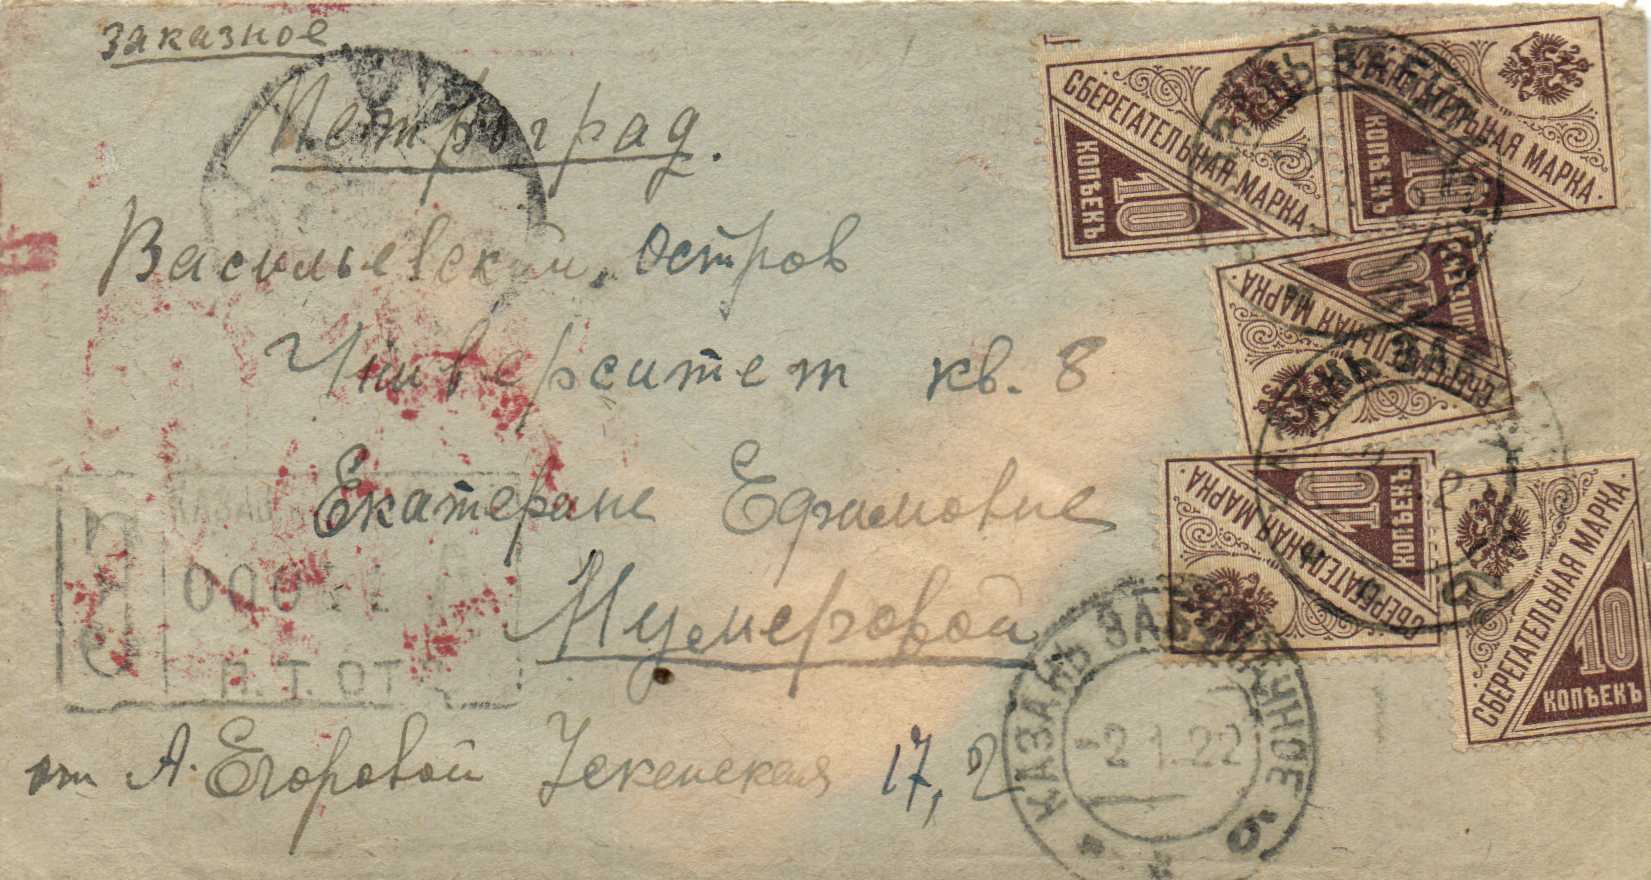 заказное
Петроград.
Васильевский остров
Университет кв. 8
Екатерине Ефимовне
Нумеровой
от А. Егоровой 17,
СБЕРЕГАТЕЛЬНАЯ МАРКА
10 КОПѢЕКЪ
СБЕРЕГАТЕЛЬНАЯ МАРКА
10 КОПѢЕКЪ
СБЕРЕГАТЕЛЬНАЯ МАРКА
10 КОПѢЕКЪ
СБЕРЕГАТЕЛЬНАЯ МАРКА
10 КОПѢЕКЪ
СБЕРЕГАТЕЛЬНАЯ МАРКА
10 КОПѢЕКЪ
КАЗАНЬ ЗАБУЛАЧНОЕ
-2.1.22
П.Т.ОТД